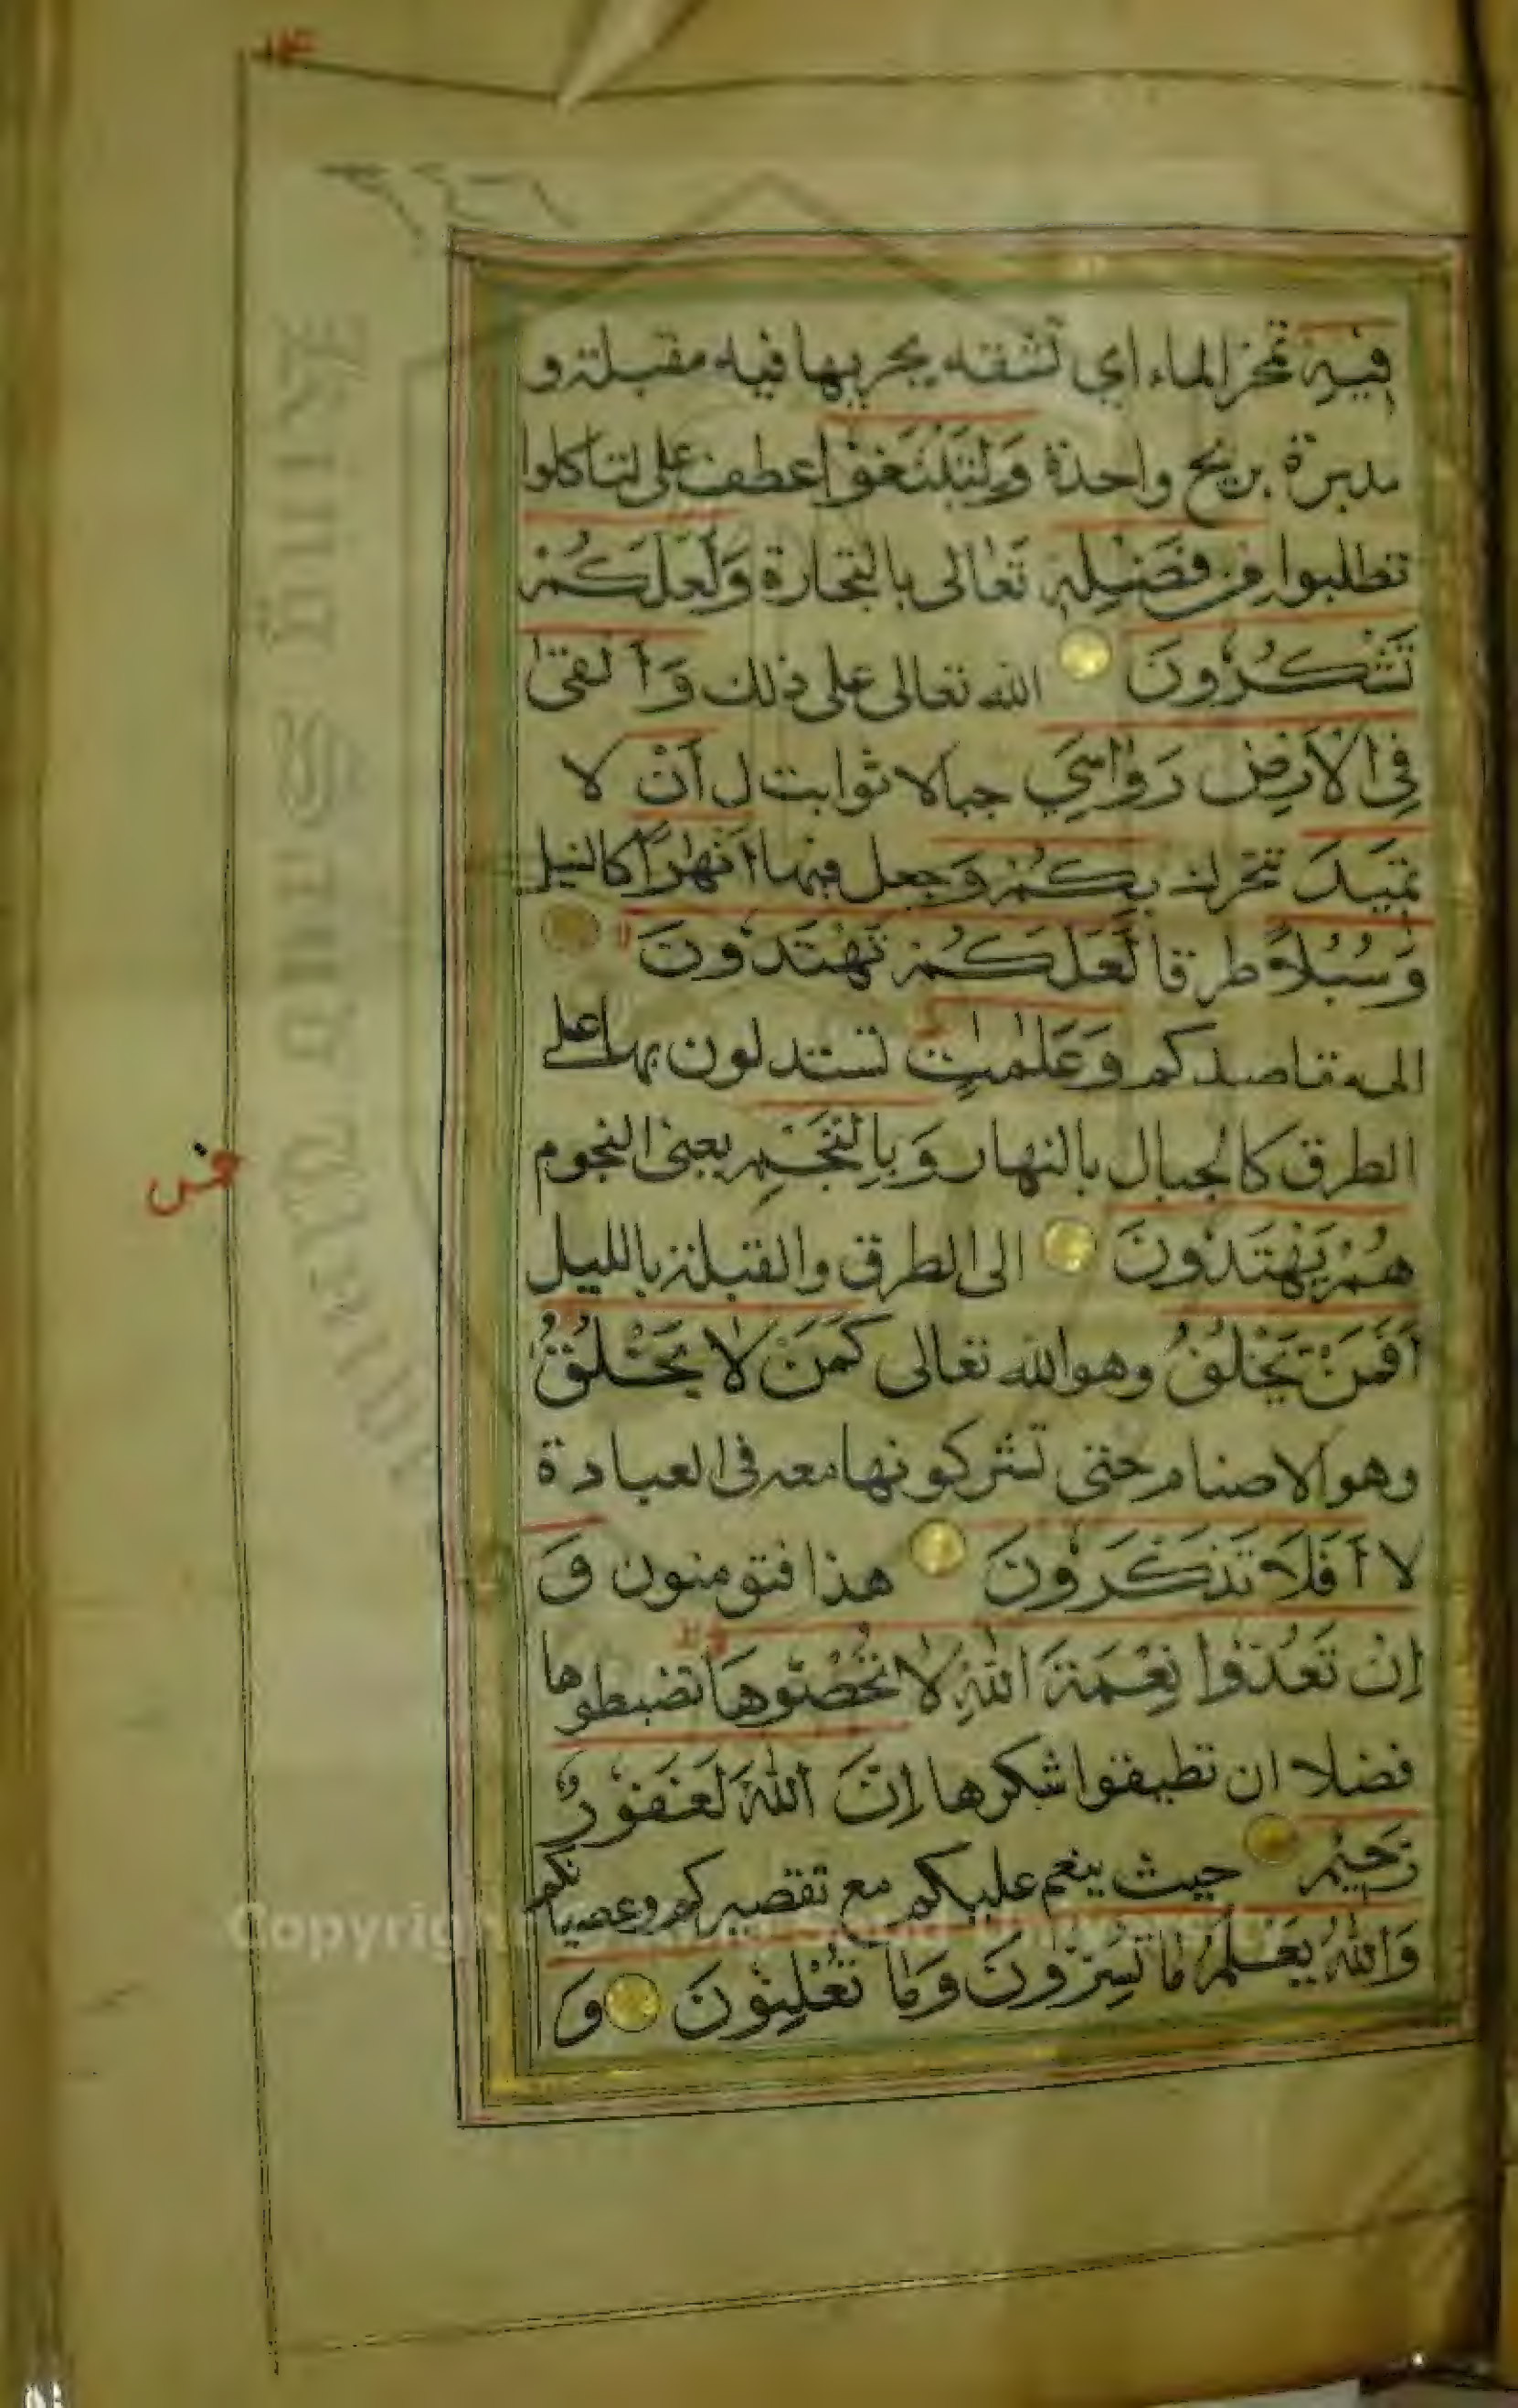 فِيهِ تمخر الماء اي تشقه بجريها فيه مقبلة و
مدبرة بريح واحدة وَلِتَبْتَغُوْا عطف على لتاكلوا
تطلبوا مِنْ فَضْلِهٖ تَعَالى بالتجارة وَلَعَلَّكُمْ
تَشْكُرُوْنَ الله تعالى على ذلك وَاَلْقٰى
فِى الْاَرْضِ رَوَاسِيَ جبالا ثوابت ل اَنْ لا
تَمِيْدَ تتحرك بِكُمْ وَجعل فيها اَنْهٰرًا كالنيل
وَسُبُلًا طرقا لَعَلَّكُمْ تَهْتَدُوْنَ
الى مقاصدكم وَعَلٰمٰتٍ تستدلون بها على
الطرق كالجبال بالنهار وَبِالنَّجْمِ يعنى النجوم
هُمْ يَهْتَدُوْنَ الى الطرق والقبلة بالليل
اَفَمَنْ يَخْلُقُ وهو الله تعالى كَمَنْ لَا يَخْلُقُ
وهو الاصنام حتى تشركونها معه فى العبادة
لا اَفَلَا تَذَكَّرُوْنَ هذا فتومنون وَ
اِنْ تَعُدُّوْا نِعْمَةَ اللّٰهِ لَا تُحْصُوْهَا تضبطوها
فضلا ان تطيقوا شكرها اِنَّ اللّٰهَ لَغَفُوْرٌ
رَحِيْمٌ حيث ينعم عليكم مع تقصيركم وعصيانكم
وَاللّٰهُ يَعْلَمُ مَا تُسِرُّوْنَ وَمَا تُعْلِنُوْنَ وَ